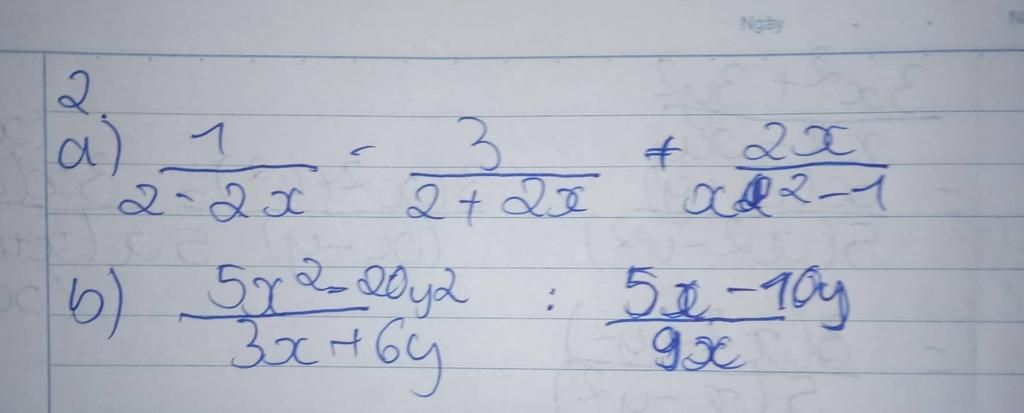 Ngày
2.
a) 1/(2 - 2x) - 3/(2 + 2x) + 2x/(x² - 1)
b) (5x² - 20y²)/(3x + 6y) : (5x - 10y)/(9x)